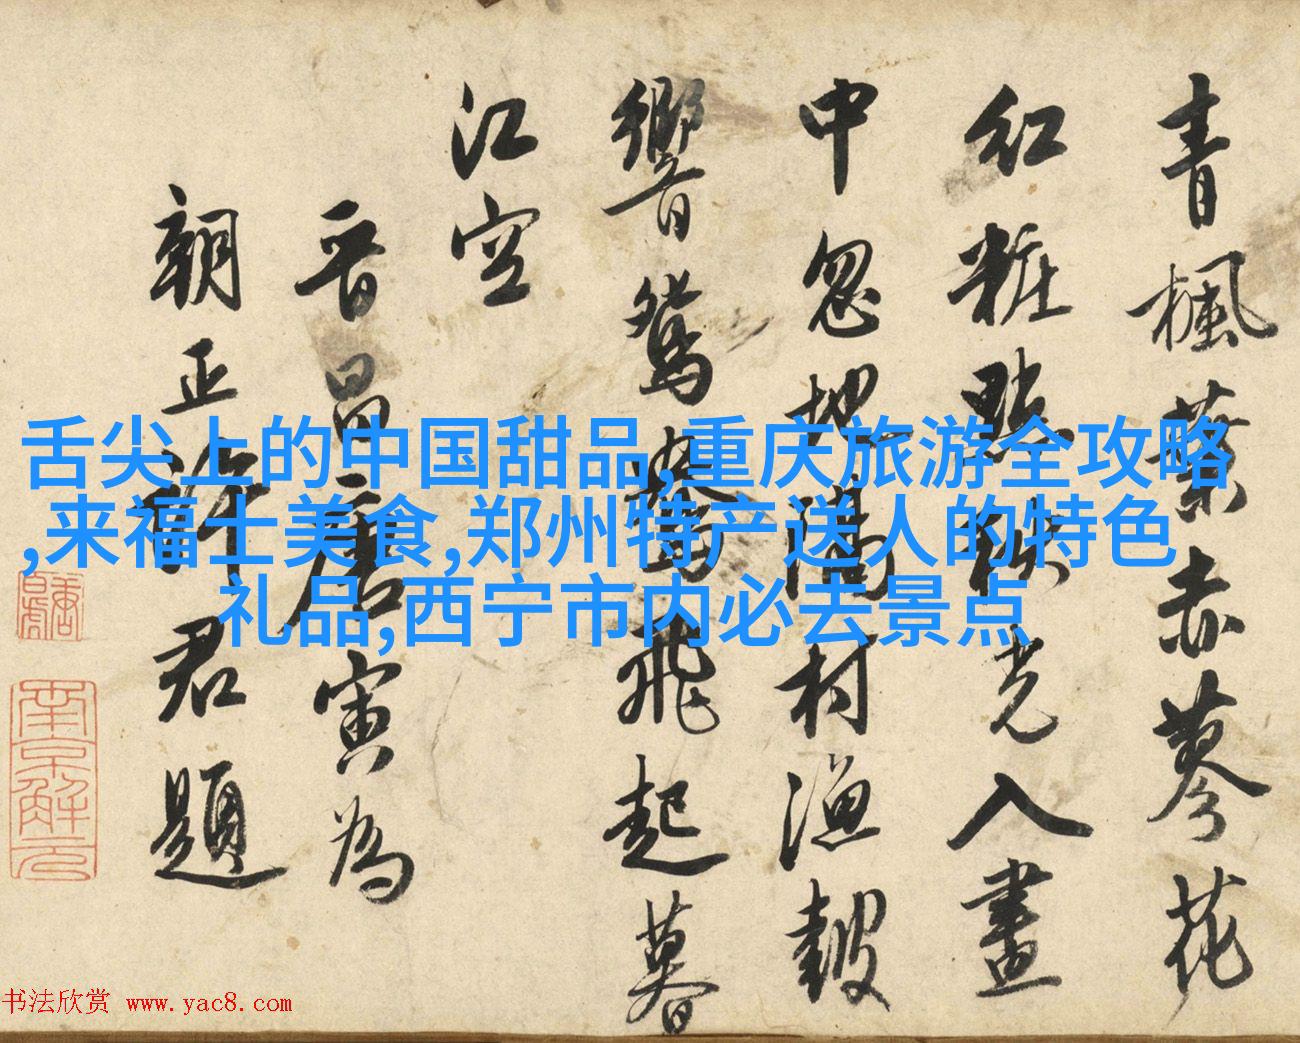 青楓葉赤蓼花
紅粧點秋光入畫
中忽地隔村漁鼓
響鴛鴦飛起暮
江空
晉昌唐寅為
朝正許君題
南京解元
舌尖上的中国甜品,重庆旅游全攻略
,来福士美食,郑州特产送人的特色
礼品,西宁市内必去景点
书法欣赏 www.yac8.com